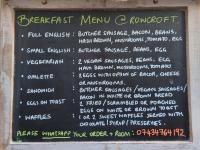 BREAKFAST MENU @ ROWCROFT.
• FULL ENGLISH : BUTCHER SAUSAGE, BACON, BEANS,
HASH BROWN, MUSHROOMS, TOMATO, EGG
• SMALL ENGLISH : BUTCHER SAUSAGE, BEANS, EGG
• VEGETARIAN : 2 VEGAN SAUSAGES, BEANS, EGG
HASH BROWN, MUSHROOMS, TOMATO
• OMLETTE : 2 EGGS WITH OPTION OF BACON, CHEESE
OR MUSHROOMS.
• SANDWICH : BUTCHERS SAUSAGES / VEGAN SAUSAGES/
BACON IN WHITE OR BROWN BREAD
• EGGS ON TOAST : 2 FRIED / SCRAMBLED OR POACHED
EGGS ON WHITE OR BROWN TOAST
• WAFFLES : 1 OR 2 SWEET WAFFLES SERVED WITH
CHOCOLATE / SYRUP / PRESERVES.
PLEASE WHATSAPP YOUR ORDER + ROOM : 07434764192